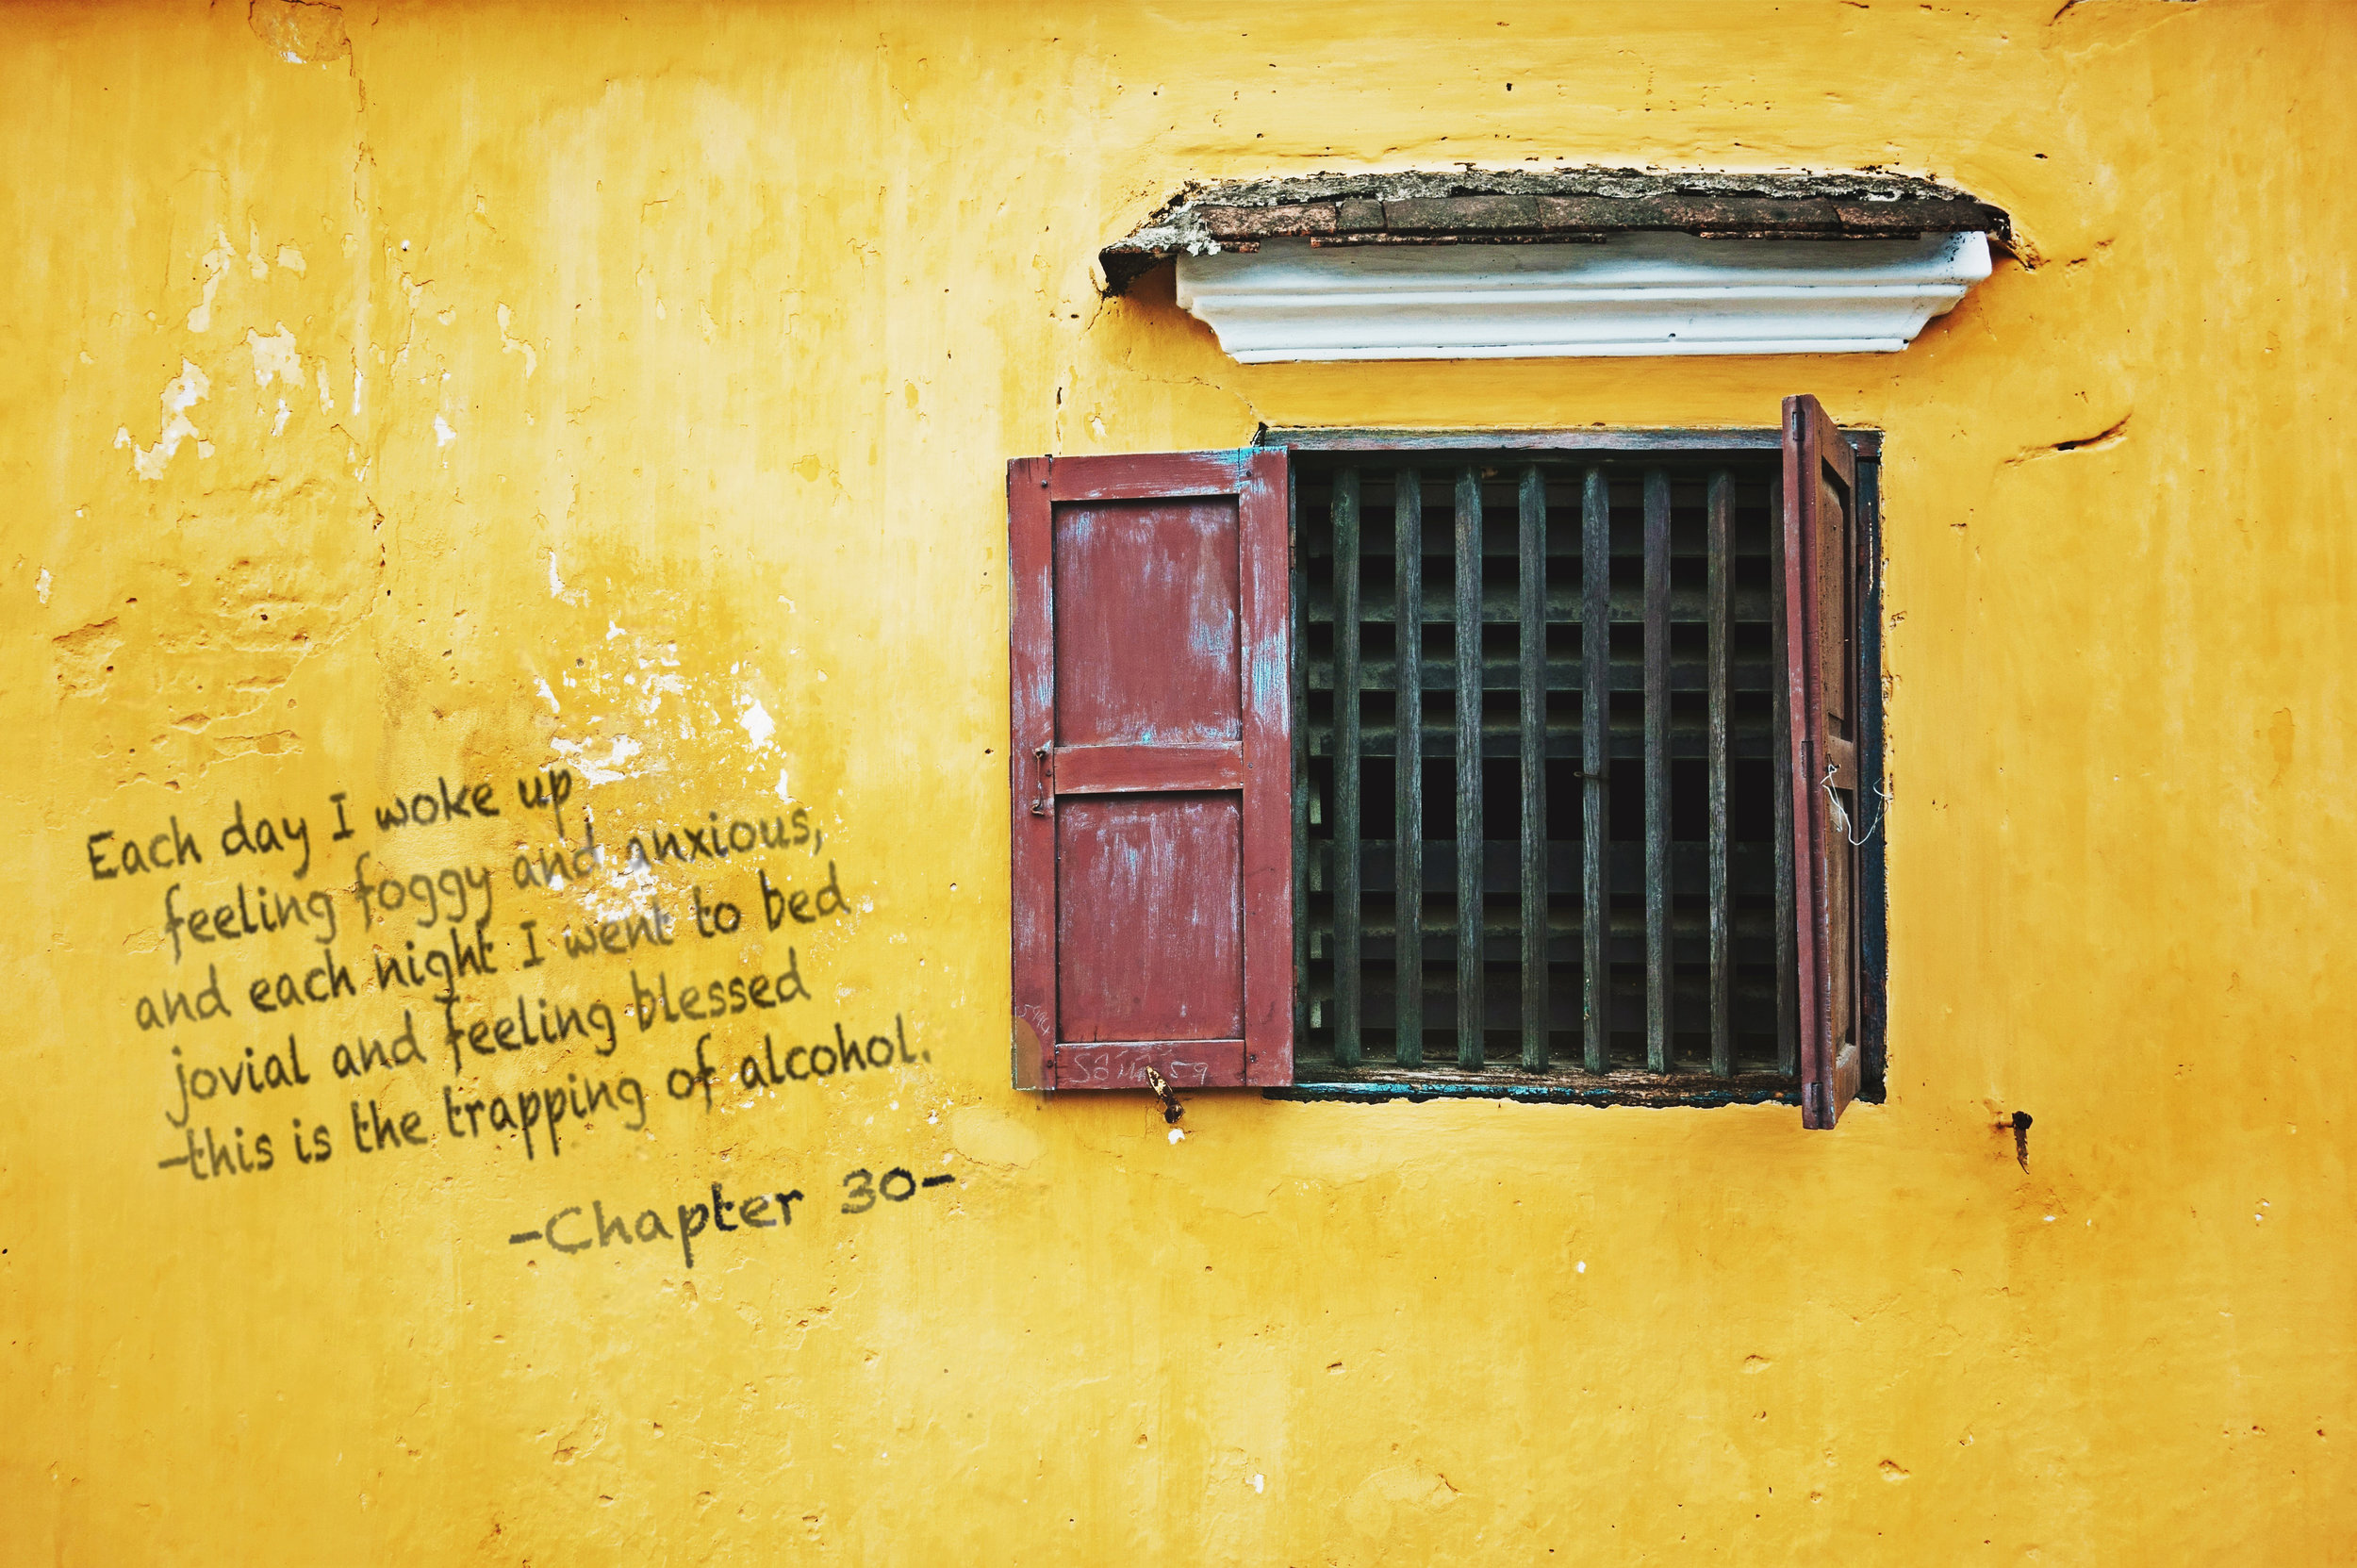 Each day I woke up
feeling foggy and anxious,
and each night I went to bed
jovial and feeling blessed
-this is the trapping of alcohol.
-Chapter 30-